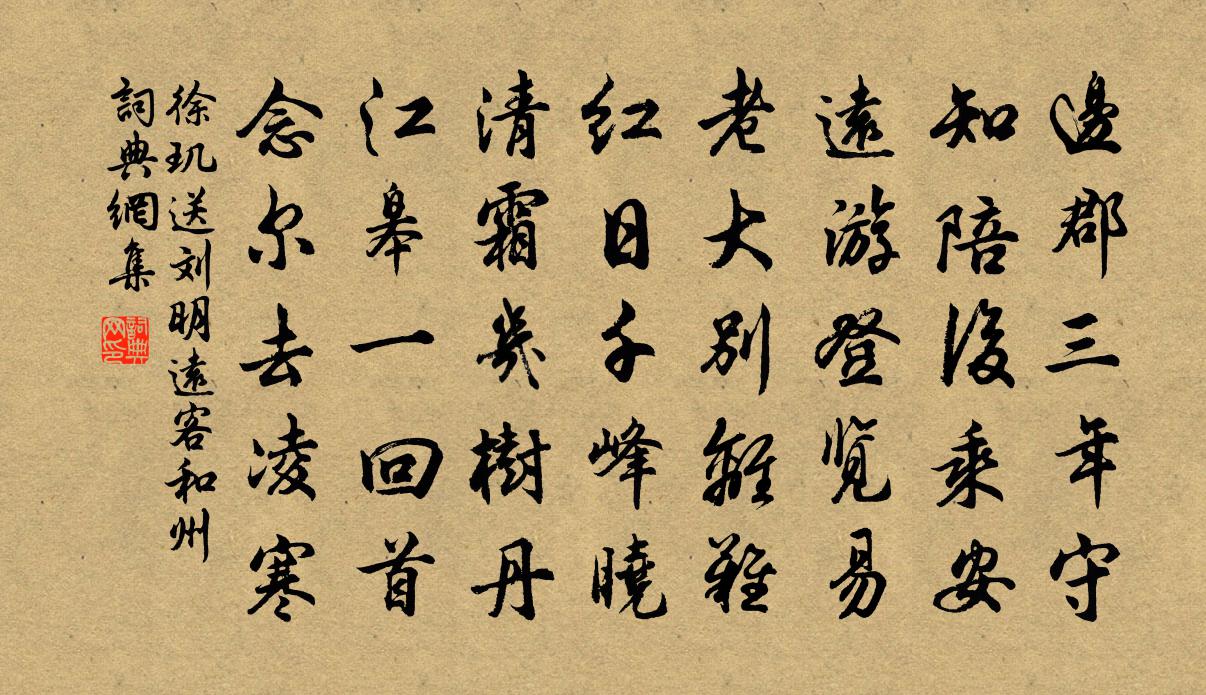 邊郡三年守
知陪後乘安
遠游登览易
老大别離難
红日千峰曉
清霜幾樹丹
江皋一回首
念尔去凌寒
徐玑送刘明遠客和州
詞典網集
詞典网印